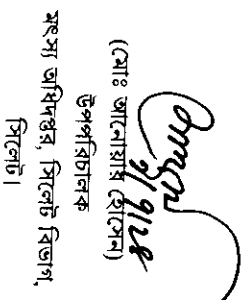 (মোঃ আনোয়ার হোসেন)
উপপরিচালক
মৎস্য অধিদপ্তর, সিলেট বিভাগ,
সিলেট।